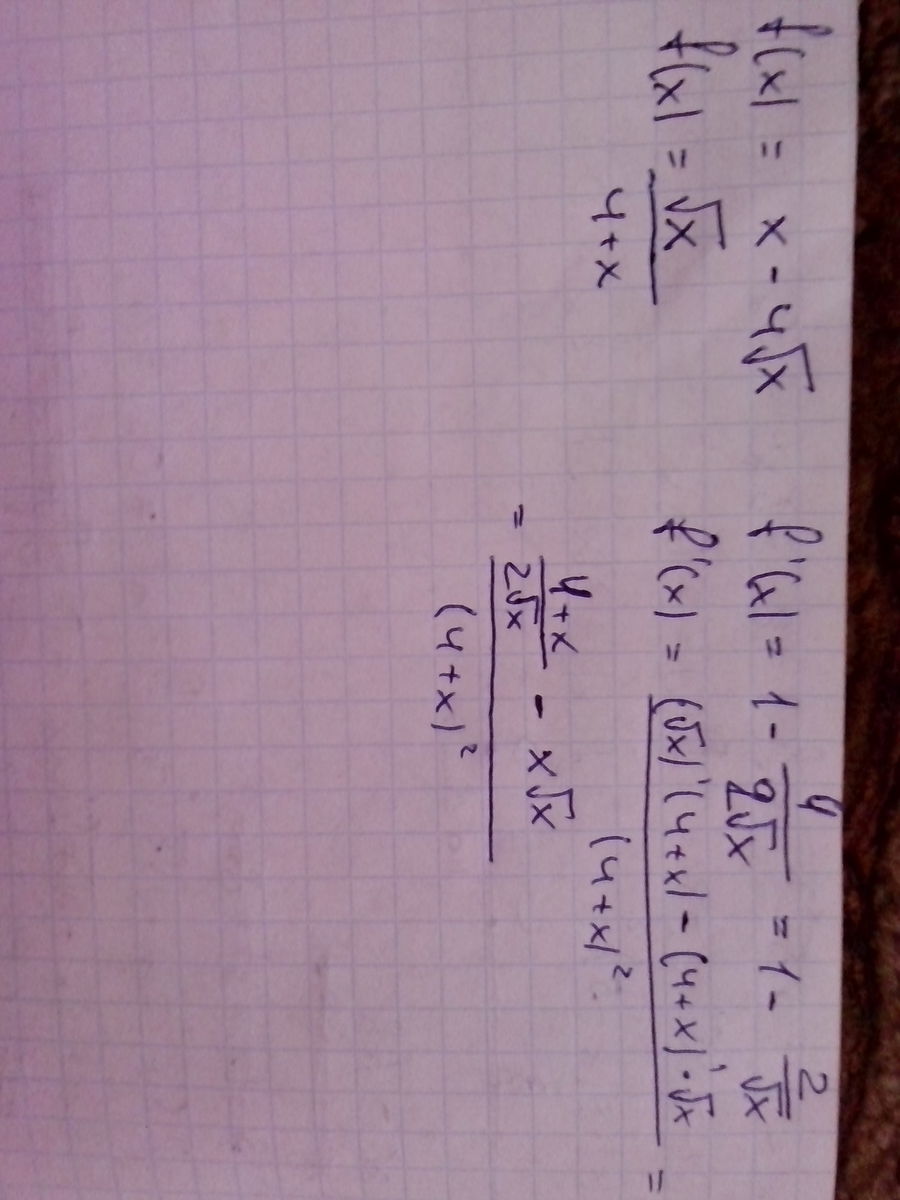 f(x) = x - 4√x f'(x) = 1 - 4/2√x = 1 - 2/√x
f(x) = √x/4+x f'(x) = (√x)'(4+x) - (4+x)'·√x/(4+x)² =
= 4+x/2√x - x√x/(4+x)²